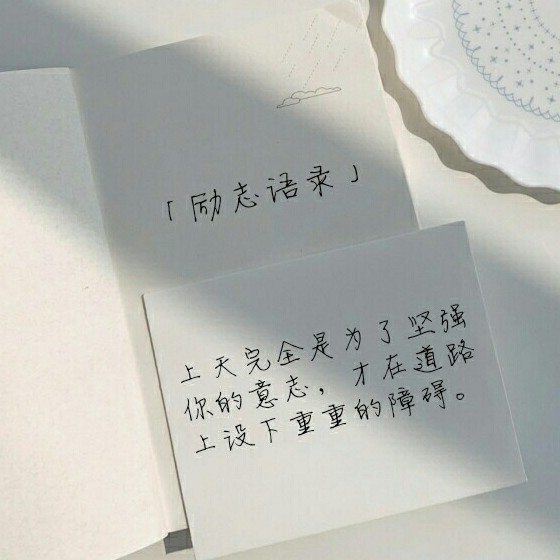 「励志语录」
上天完全是为了坚强
你的意志，才在道路
上设下重重的障碍。